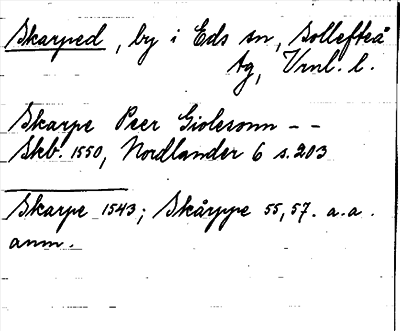 Skarped, by i Eds sn, Sollefteå
tg, Vrnl. l.
Skarpe Peer Giolesonn - -
Skb. 1550, Nordlander 6 s. 203
Skarpe 1543; Skårppe 55, 57. a.a.
anm.